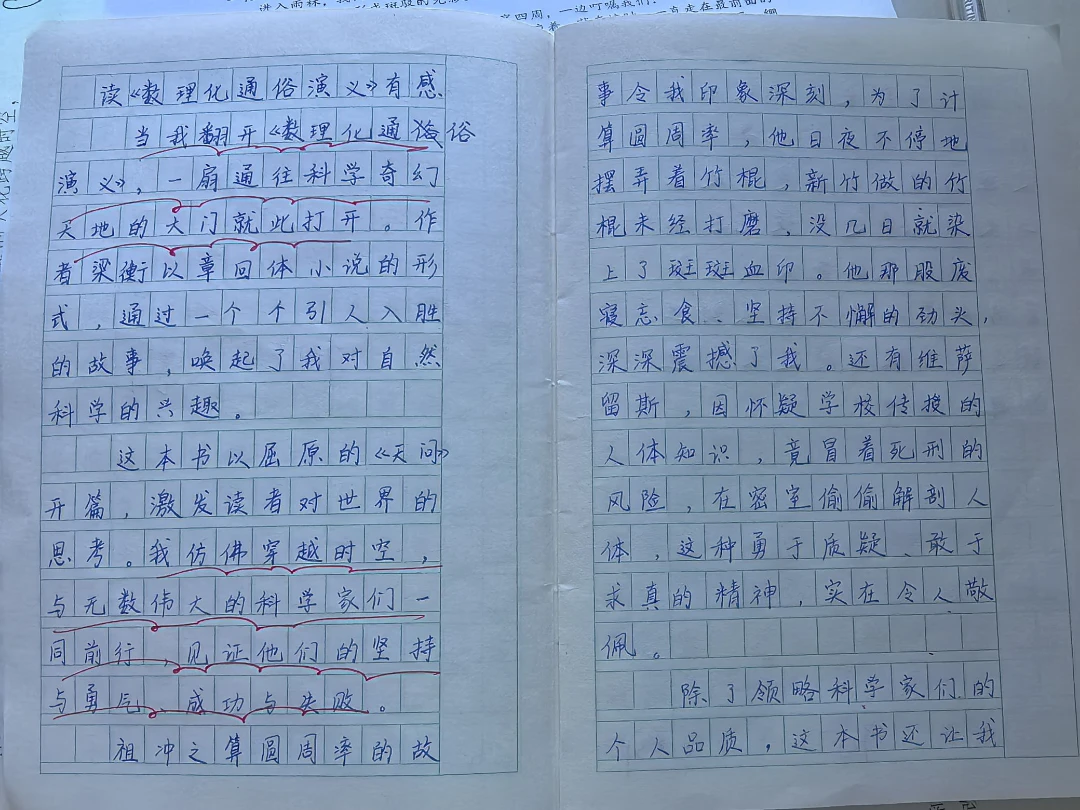 进入雨林，我
四周，一边叮嘱我们：
走在最前面的
读《数理化通俗演义》有感
当我翻开《数理化通俗
演义》，一扇通往科学奇幻
天地的大门就此打开。作
者梁衡以章回体小说的形
式，通过一个个引人入胜
的故事，唤起了我对自然
科学的兴趣。
这本书以屈原的《天问》
开篇，激发读者对世界的
思考。我仿佛穿越时空，
与无数伟大的科学家们一
同前行，见证他们的坚持
与勇气、成功与失败。
祖冲之算圆周率的故
事令我印象深刻，为了计
算圆周率，他日夜不停地
摆弄着竹棍，新竹做的竹
棍未经打磨，没几日就染
上了斑斑血印。他那股废
寝忘食、坚持不懈的劲头，
深深震撼了我。还有维萨
留斯，因怀疑学校传授的
人体知识，竟冒着死刑的
风险，在密室偷偷解剖人
体，这种勇于质疑、敢于
求真的精神，实在令人敬
佩。
除了领略科学家们的
个人品质，这本书还让我